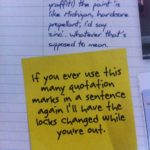 graffiti) the point is
like Michigan, hardcore
propellant, I'd say
and... whatever that's
supposed to mean.
If you ever use this
many quotation
marks in a sentence
again I'll have the
locks changed while
you're out.